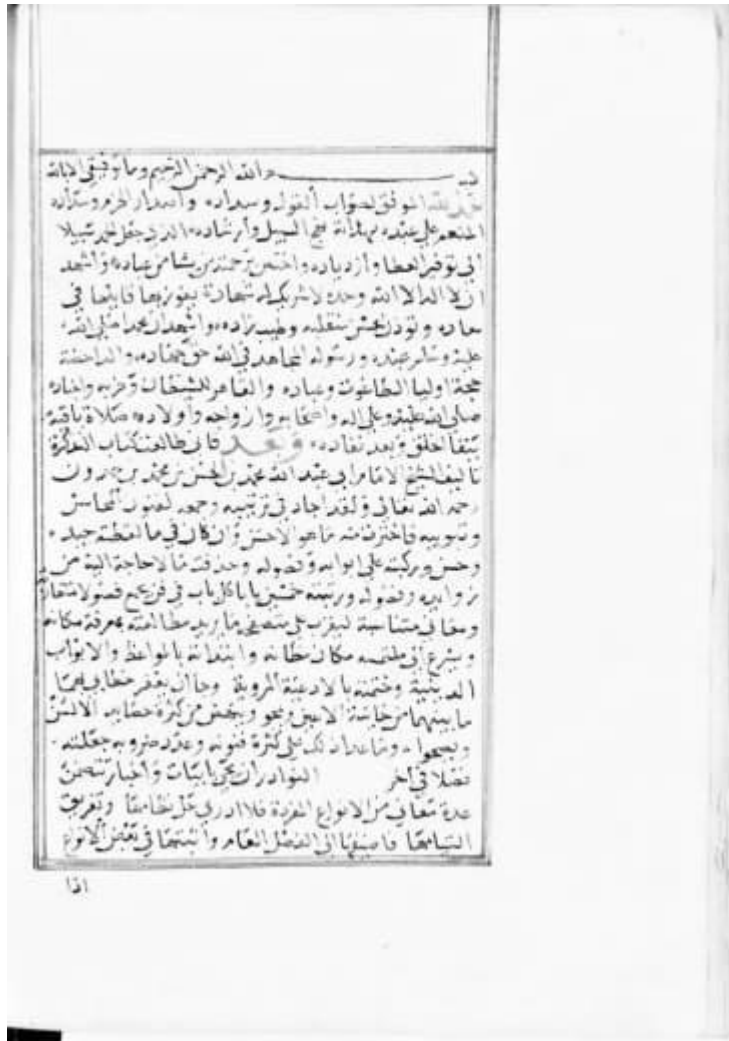 بسم الله الرحمن الرحيم وما توفيقي الا بالله
الحمد لله الموفق لصواب القول وسداده واصدار الحزم وستداده
المنعم على عبده بهدايته نهج السبيل وارشاده الذي جعل الحمد سبيلا
الى توفير العطا وازدياده واختص برحمته من يشا من عباده واشهد
ان لا اله الا الله وحده لا شريك له شهادة يفوز بها قايلها في
معاده وتوذن بحسن منقلبه وطيب زاده واشهد ان محمدا صلى الله
عليه وسلم عبده ورسوله المجاهد في الله حق جهاده والداحضة
حجة اوليا الطاغوت وعباده والقاهر للشيطان وحزبه واجناده
صلى الله عليه وعلى اله واصحابه وازواجه واولاده صلاة باقية
ببقا الخلق وبعد نفاده وبعد فاني طالعت كتاب التذكرة
تاليف الشيخ الامام ابي عبد الله محمد بن الحسن بن محمد بن حمدون
رحمه الله تعالى ولقد اجاد في ترتيبه وجمعه لفنون المحاسن
وتبويبه فاخترت منه ما هو الاحسن وان كان في ما لفظته جيد
وحسن وركبته على ابوابه وفصوله وحذفت ما لا حاجة اليه من
زوايده وفضوله ورتبته خمسين بابا كل باب في فن يجمع فصولا متقاربة
ومعاني متناسبة ليقرب على متصفح ما يريد مطالعته بمعرفة مكانه
ويسرع الى ملتمسه مكان مظانه وابتداته بالمواعظ والابواب
الدينية وختمته بالادعية المروية رجا ان يغفر خطايي بهما
ما بينهما من خاينة الاعين ويمحو ويمحص من كثرة حصايد الالسن
ويمحوا وما عدا ذلك على كثرة فنونه وعدد ضروبه جعلته
فصلا في اخر النوادر ان يجي بابيات واخبار تتضمن
عدة معاني من الانواع المفردة فلا ادري حل نظامها وتفريق
التيامها فاضيفها الى الفصل العام واثبتها في بعض الانواع
اذا